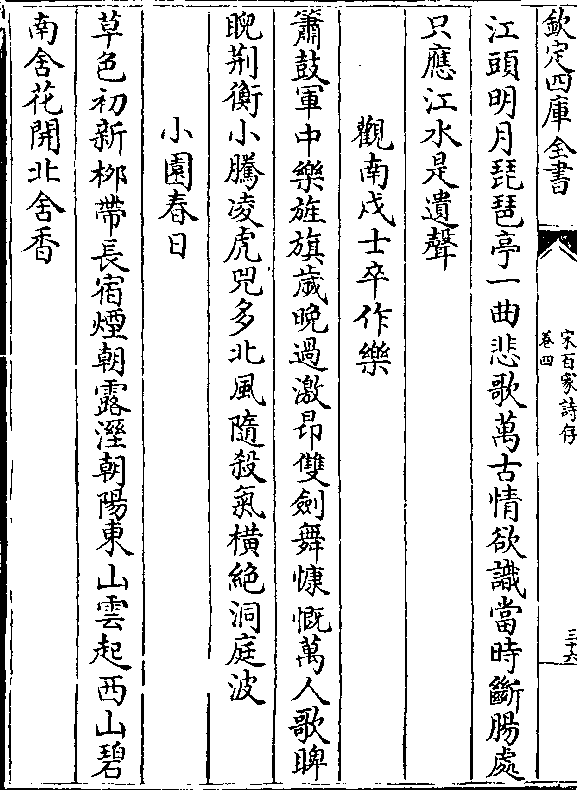 欽定四庫全書
宋百家詩存
卷四
三十六
江頭明月琵琶亭一曲悲歌萬古情欲識當時斷腸處
只應江水是遺聲
觀南戍士卒作樂
簫鼓軍中樂旌旗歲晚過激昂雙劍舞慷慨萬人歌睥
睨荆衡小騰凌虎兕多北風隨殺氣橫絶洞庭波
小園春日
草色初新栁帶長宿煙朝露溼朝陽東山雲起西山碧
南舍花開北舍香